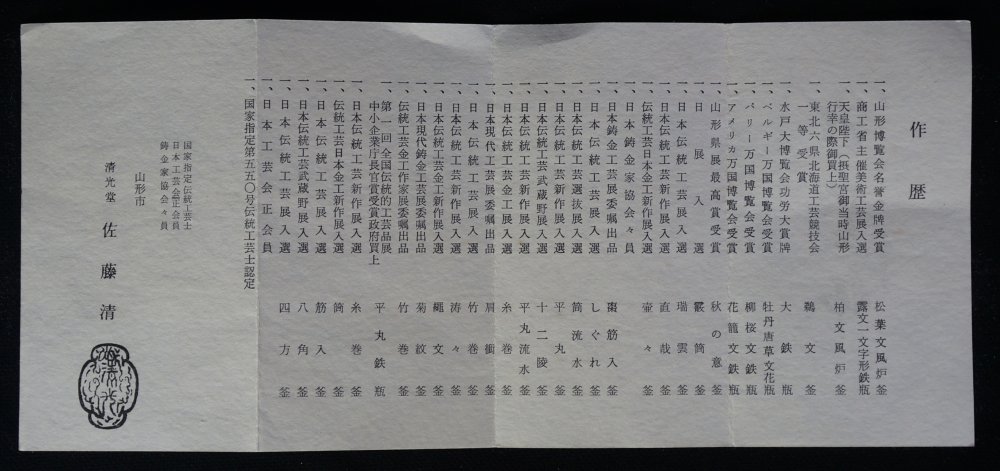 作歴
一、山形博覧会名誉金牌受賞　松葉文風炉釜
一、商工省主催美術工芸展入選　露文一文字形鉄瓶
一、天皇陛下（摂聖宮御当時山形
行幸の際御買上）　柏文風炉釜
一、東北六県北海道工芸競技会
一等受賞　鵜文釜
一、水戸大博覧会功労大賞牌　大鉄瓶
一、ベルギー万国博覧会受賞　牡丹唐草文花瓶
一、パリー万国博覧会受賞　柳桜文鉄瓶
一、アメリカ万国博覧会受賞　花籠文鉄瓶
一、山形県展最高賞受賞　秋の意釜
一、日展入選　霰筒釜
一、日本伝統工芸展入選　瑞雲釜
一、日本伝統工芸展入選　直哉釜
一、伝統工芸日本金工展入選　壷々釜
一、日本鋳金家協会々員
一、日本鋳金工展入選　棗筋入釜
一、日本伝統工芸展入選　しぐれ釜
一、日本伝統工芸展選抜展入選　筒流水釜
一、日本伝統工芸新作展入選　平丸釜
一、日本伝統工芸武蔵野展入選　十二陵釜
一、日本伝統工芸展入選　平丸流水釜
一、日本伝統金工展入選　糸巻釜
一、日本現代工芸展委嘱出品　肩衝釜
一、日本伝統工芸展入選　竹巻釜
一、日本伝統工芸新作展入選　涛々釜
一、日本伝統工芸金工新作展入選　繩文釜
一、日本現代鋳金工芸展委嘱出品　菊紋釜
一、伝統工芸金工作家展委嘱出品　竹巻釜
一、第一回全国伝統的工芸品展
中小企業庁長官賞受賞政府買上　平丸鉄瓶
一、日本伝統工芸新作展入選　糸巻釜
一、伝統工芸日本金工新作展入選　筒釜
一、日本伝統工芸展入選　筋入釜
一、日本伝統工芸武蔵野展入選　八角釜
一、日本伝統工芸展入選　四方釜
一、日本工芸会正会員
一、国家指定第五五〇号伝統工芸士認定
国家指定伝統工芸士
日本工芸会正会員
鋳金家協会々員
山形市
清光堂　佐藤清